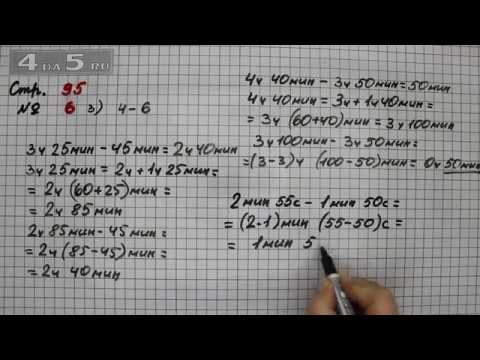 4 DA 5.RU
Стр. 95
№ 6 3) 4-6
3ч 25мин - 45мин = 2ч 40мин
3ч 25мин = 2ч + 1ч 25мин =
= 2ч (60+25)мин =
= 2ч 85мин
2ч 85мин - 45мин =
= 2ч (85-45)мин =
= 2ч 40мин
4ч 40мин - 3ч 50мин = 50мин
4ч 40мин = 3ч + 1ч 40мин =
= 3ч (60+40)мин = 3ч 100мин
3ч 100мин - 3ч 50мин =
= (3-3)ч (100-50)мин = 0ч 50мин
2мин 55с - 1мин 50с =
= (2-1)мин (55-50)с =
= 1мин 5